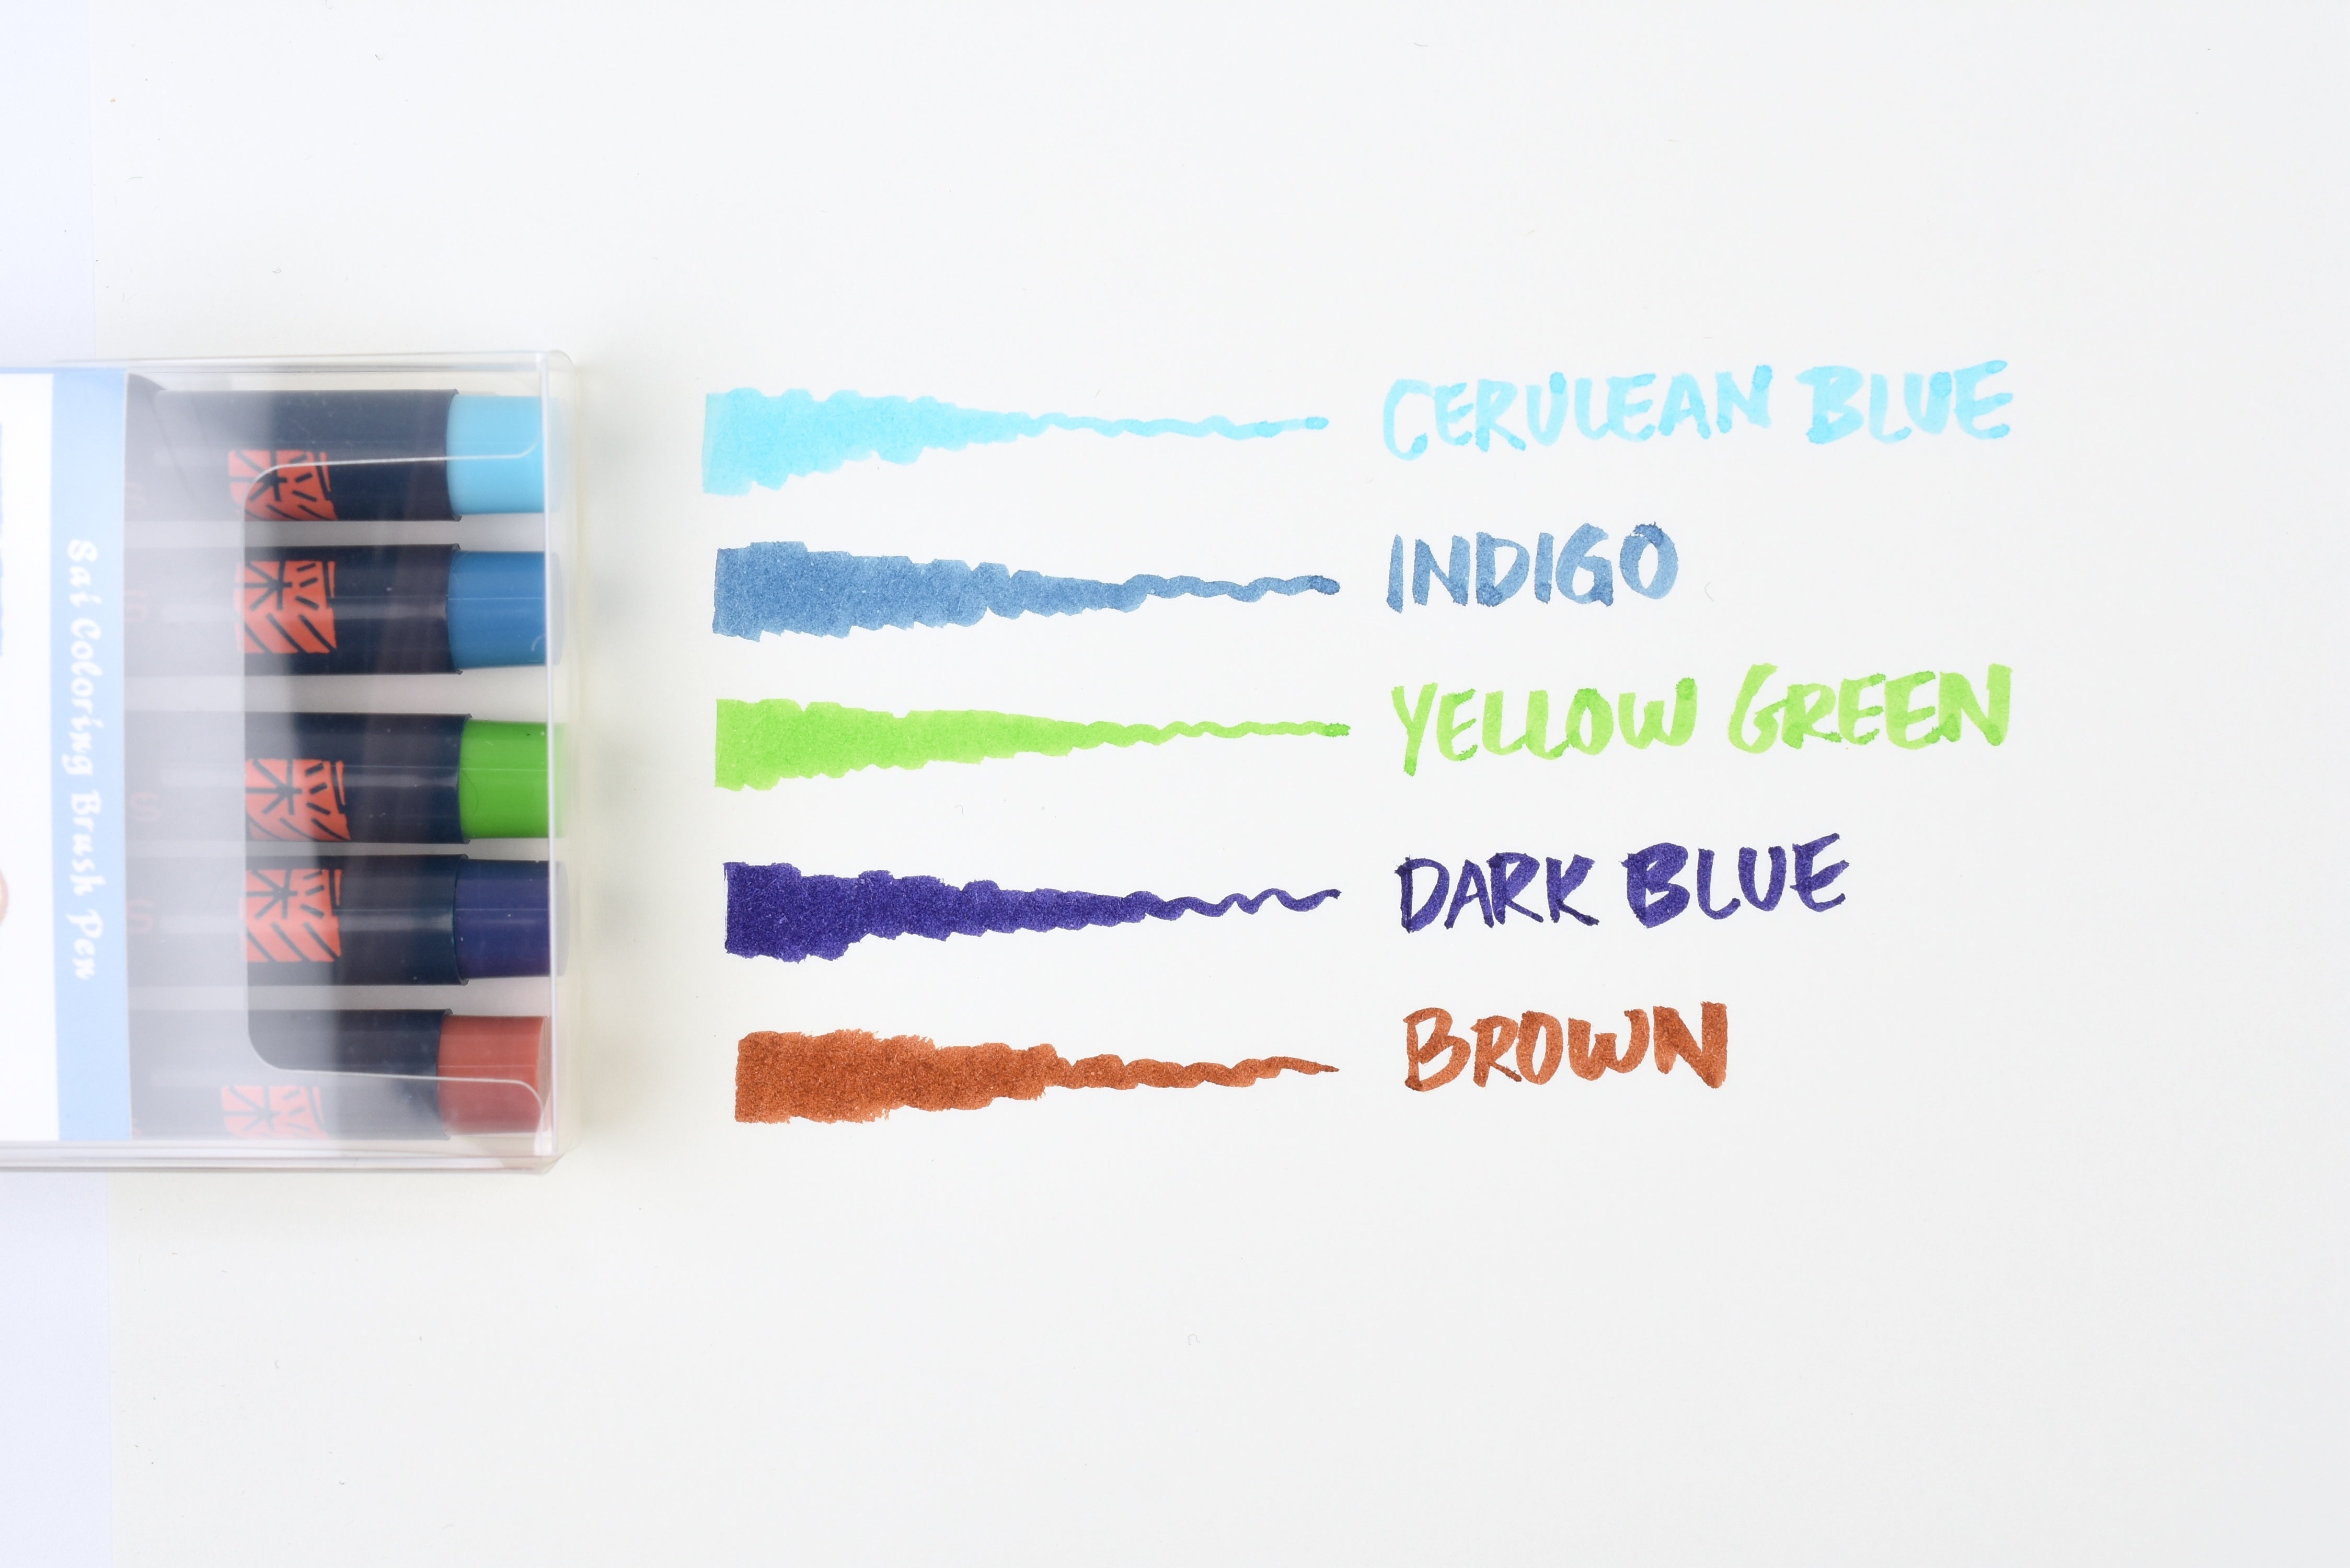 Sai Coloring Brush Pen
彩
彩
彩
彩
彩
S
S
S
S
CERULEAN BLUE
INDIGO
YELLOW GREEN
DARK BLUE
BROWN